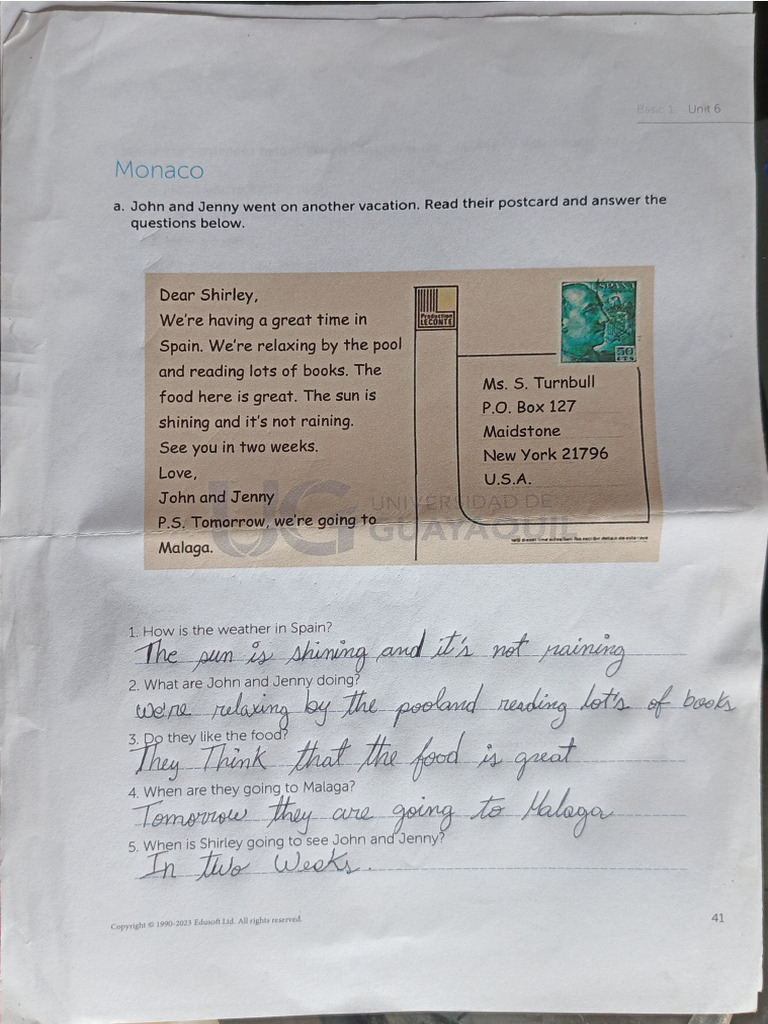 Basic 1 Unit 6
Monaco
a. John and Jenny went on another vacation. Read their postcard and answer the
questions below.
Dear Shirley,
We're having a great time in
Spain. We're relaxing by the pool
and reading lots of books. The
food here is great. The sun is
shining and it's not raining.
See you in two weeks.
Love,
John and Jenny
P.S. Tomorrow, we're going to
Malaga.
Production
LECONTE
ESPAÑA
50
CTS
Ms. S. Turnbull
P.O. Box 127
Maidstone
New York 21796
U.S.A.
UG UNIVERSIDAD DE
GUAYAQUIL
1. How is the weather in Spain?
The sun is shining and it's not raining
2. What are John and Jenny doing?
we're relaxing by the pooland reading lot's of books
3. Do they like the food?
They Think that the food is great
4. When are they going to Malaga?
Tomorrow they are going to Malaga
5. When is Shirley going to see John and Jenny?
In two Weeks.
Copyright © 1990-2023 Edusoft Ltd. All rights reserved.
41